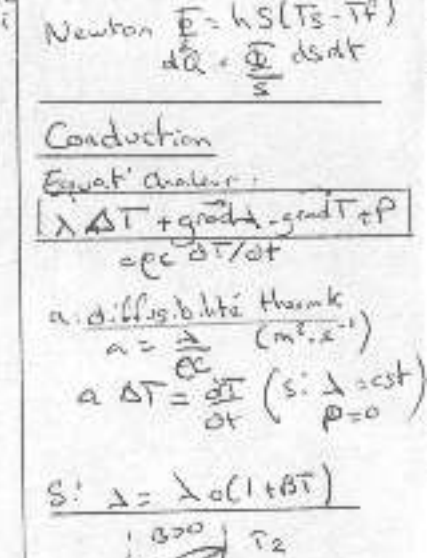 Newton Φ = hS(Ts-Tf)
dQ = Φ/S dsdt
Conduction
Equat° chaleur :
λ ΔT + grad λ . grad T + P
= ρc ∂T/∂t
a : diffusibilité thermik
a = λ/ρc (m².s⁻¹)
a ΔT = ∂T/∂t (si λ = cst
P = 0)
Si λ = λ₀(1+βT)
β>0 T₂